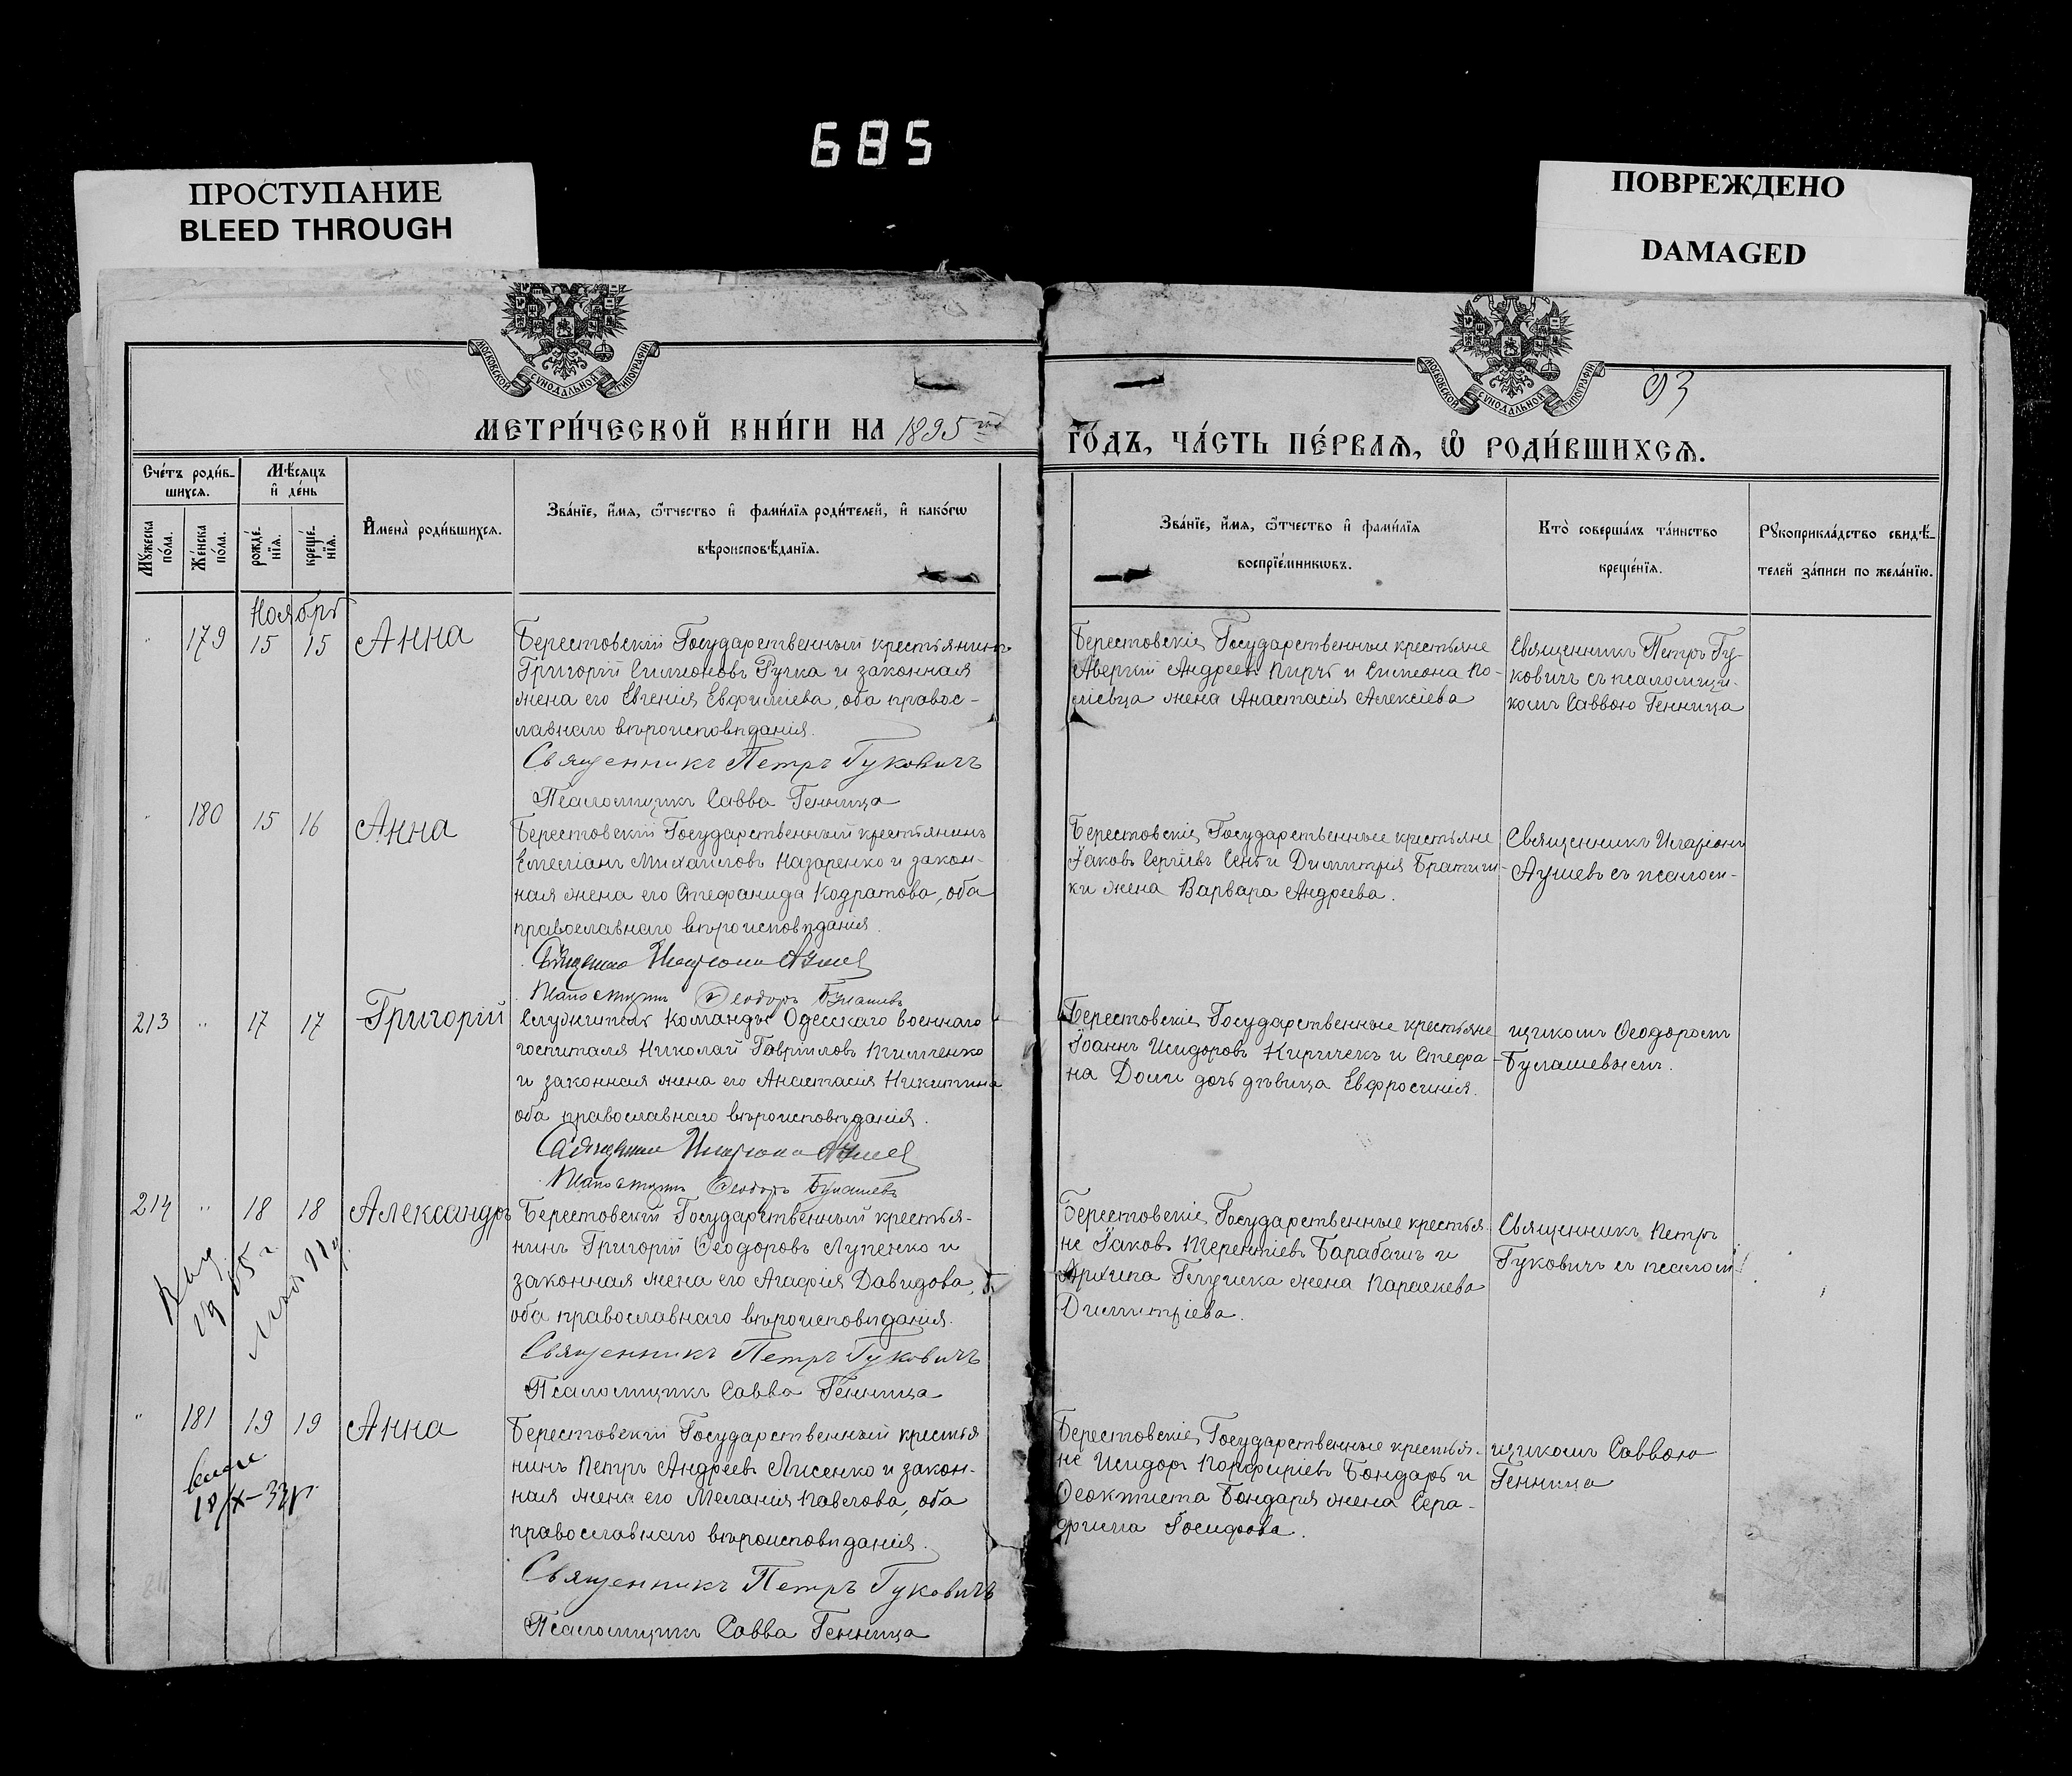 685
ПРОСТУПАНИЕ
BLEED THROUGH
ПОВРЕЖДЕНО
DAMAGED
МОСКОВСКОЙ СѴНОДАЛЬНОЙ ТИПОГРАФІИ
МОСКОВСКОЙ СѴНОДАЛЬНОЙ ТИПОГРАФІИ
93
МЕТРИ́ЧЕСКОЙ КНИ́ГИ НА 1895 го́дъ, ЧА́СТЬ ПЕ́РВАѦ, Ѡ҆ РОДИ́ВШИХСѦ.
Сче́тъ роди́в-
шихсѧ.
Мѣ́сѧцъ
и҆ де́нь
Мꙋ́жеска
по́ла.
Же́нска
по́ла.
рожде́-
нїѧ.
креще́-
нїѧ.
И҆мена̀ роди́вшихсѧ.
Зва́нїе, и҆́мѧ, ѻ҆́тчество и҆ фами́лїѧ роди́телей, и҆ како́гѡ
вѣроисповѣ́данїѧ.
Зва́нїе, и҆́мѧ, ѻ҆́тчество и҆ фами́лїѧ
воспрїе́мникѡвъ.
Кто̀ соверша́лъ та́инство
креще́нїѧ.
Рꙋкоприкла́дство свидѣ́-
телей за́писи по жела́нїю.
Ноябрь
" 179 15 15 Анна
Берестовскій Государственный крестьянинъ
Григорій Симеоновъ Ручка и законная
жена его Евгенія Евфиміева, оба правос-
лавнаго вѣроисповѣданія.
Священникъ Петръ Гуковичъ
Псаломщикъ Савва Генница
Берестовскіе Государственные крестьяне
Аверкій Андреевъ и Симеона По-
жена Анастасія Алексіева
Священникъ Петръ Гу-
ковичъ съ псаломщи-
комъ Саввою Генница
" 180 15 16 Анна
Берестовскій Государственный крестьянинъ
Емеліанъ Михаиловъ Назаренко и закон-
ная жена его Стефанида Кодратова, оба
православнаго вѣроисповѣданія.
Священникъ Иларіонъ
Ѳеодоръ Булашевъ
Берестовскіе Государственные крестьяне
Іаковъ Сергіевъ и Димитрія Братиш-
ки жена Варвара Андреева.
Священникъ Иларіонъ
съ псалом-
213 " 17 17 Григорій
Служитель команды Одесскаго военнаго
госпиталя Николай Гавріиловъ Пилипенко
и законная жена его Анастасія Никитина
оба православнаго вѣроисповѣданія.
Священникъ Иларіонъ
Ѳеодоръ Булашевъ
Берестовскіе Государственные крестьяне
Іоаннъ Исидоровъ Киричекъ и Стефа-
на дочь дѣвица Евфросинія.
щикомъ Ѳеодоромъ
Булашевымъ.
214 " 18 18 Александръ
Берестовскій Государственный крестья-
нинъ Григорій Ѳеодоровъ Лупенко и
законная жена его Агафія Давидова,
оба православнаго вѣроисповѣданія.
Священникъ Петръ Гуковичъ
Псаломщикъ Савва Генница
Берестовскіе Государственные крестья-
не Іаковъ Терентіевъ Барабашъ и
Архипа жена Параскева
Димитріева.
Священникъ Петръ
Гуковичъ съ псалом
" 181 19 19 Анна
18/X-33 г.
Берестовскій Государственный крестья
нинъ Петръ Андреевъ Лисенко и закон-
ная жена его Меланія Павлова, оба
православнаго вѣроисповѣданія.
Священникъ Петръ Гуковичъ
Псаломщикъ Савва Генница
Берестовскіе Государственные крестья-
не Исидоръ Порфиріевъ Бондарь и
Ѳеоктиста Бондаря жена Сера-
фима
щикомъ Саввою
Генница